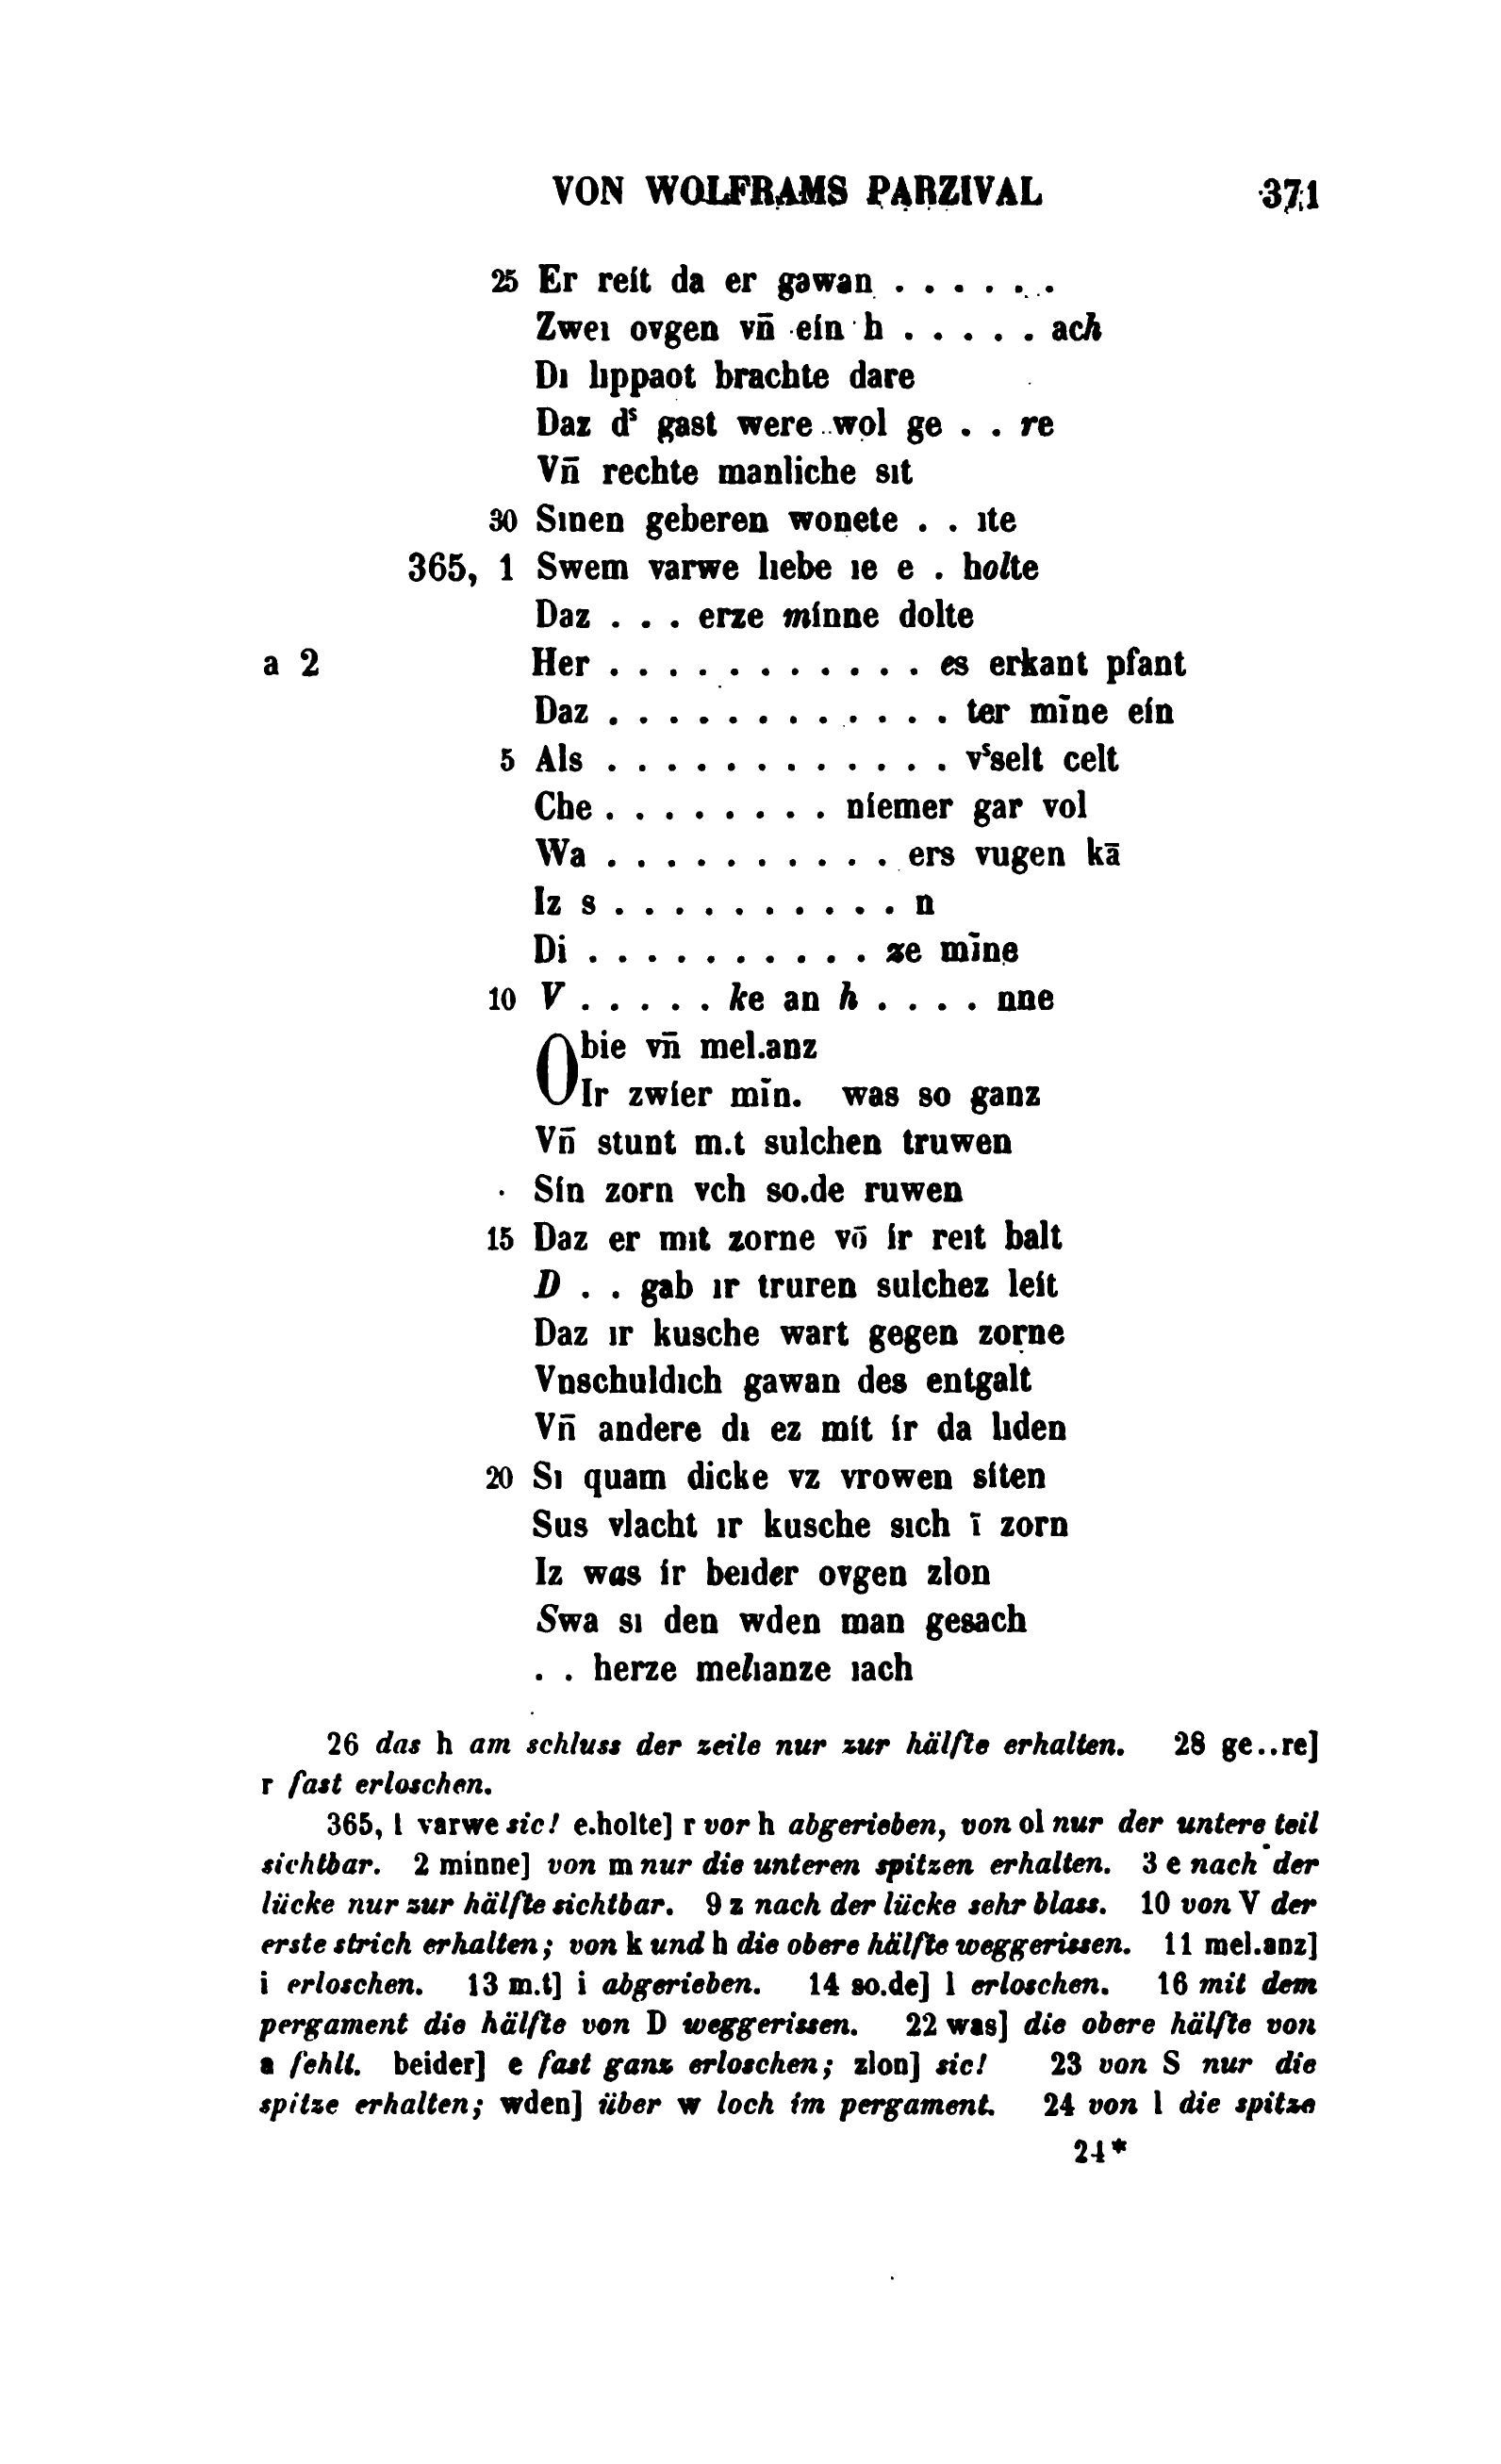 VON WOLFRAMS PARZIVAL 371
25 Er reít da er gawan . . . . . .
Zweı ovgen vn̄ eín h . . . . . ach
Dı lıppaot brachte dare
Daz dˢ gast were wol ge . . re
Vn̄ rechte manliche sıt
30 Sınen geberen wonete . . ıte
365, 1 Swem varwe lıebe ıe e . holte
Daz . . . erze mínne dolte
a 2 Her . . . . . . . . . . . es erkant pfant
Daz . . . . . . . . . . . . ter mīne eín
5 Als . . . . . . . . . . . . vˢselt celt
Che . . . . . . . . níemer gar vol
Wa . . . . . . . . . . ers vugen kā
Iz s . . . . . . . . . . n
Di . . . . . . . . . . ze mīne
10 V . . . . . ke an h . . . . nne
Obie vn̄ mel.anz
Ir zwíer mīn. was so ganz
Vn̄ stunt m.t sulchen truwen
Sín zorn vch so.de ruwen
15 Daz er mıt zorne vō ír reıt balt
D . . gab ır truren sulchez leít
Daz ır kusche wart gegen zorne
Vnschuldıch gawan des entgalt
Vn̄ andere dı ez mít ír da lıden
20 Sı quam dicke vz vrowen síten
Sus vlacht ır kusche sıch ī zorn
Iz was ír beıder ovgen zlon
Swa sı den wden man gesach
. . herze melıanze ıach
26 das h am schluss der zeile nur zur hälfte erhalten. 28 ge..re]
r fast erloschen.
365, 1 varwe sic! e.holte] r vor h abgerieben, von ol nur der untere teil
sichtbar. 2 minne] von m nur die unteren spitzen erhalten. 3 e nach der
lücke nur zur hälfte sichtbar. 9 z nach der lücke sehr blass. 10 von V der
erste strich erhalten; von k und h die obere hälfte weggerissen. 11 mel.anz]
i erloschen. 13 m.t] i abgerieben. 14 so.de] l erloschen. 16 mit dem
pergament die hälfte von D weggerissen. 22 was] die obere hälfte von
a fehlt. beider] e fast ganz erloschen; zlon] sic! 23 von S nur die
spitze erhalten; wden] über w loch im pergament. 24 von l die spitze
24*